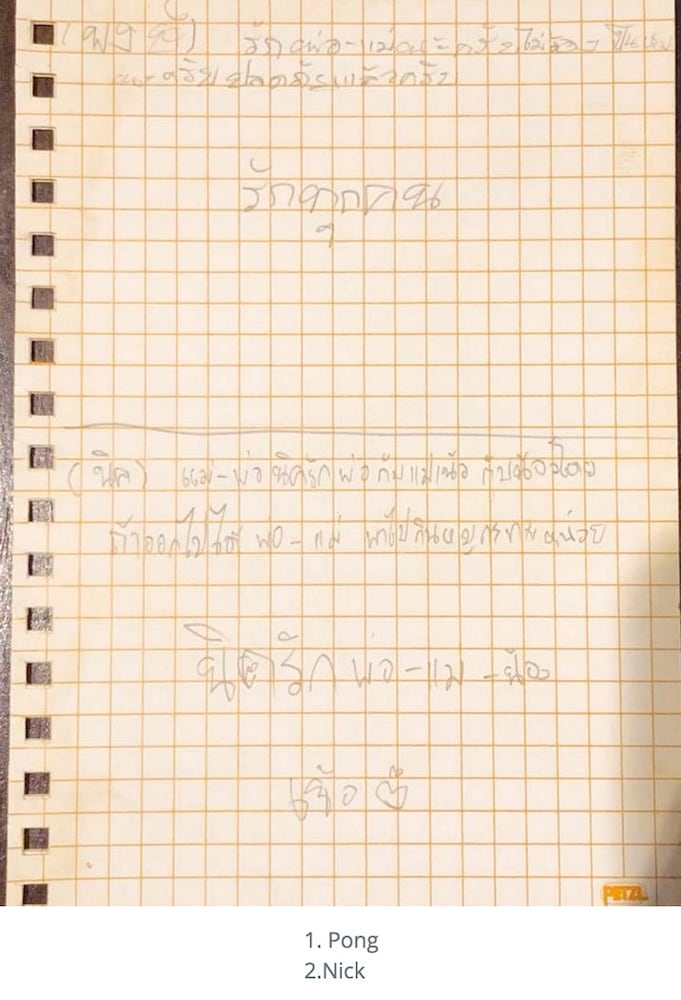 (พงษ์) รักพ่อ-แม่นะครับไม่ต้อง เป็นห่วง
นะครับปลอดภัยแล้วครับ
รักทุกคน
(นิค) แม่-พ่อนิครักพ่อกับแม่ กับน้องโดย
ถ้าออกไปได้ พ่อ-แม่ พาไปกินหมูกระทะหน่อย
นิครักพ่อ-แม่-น้อง
PETZL
1. Pong
2.Nick